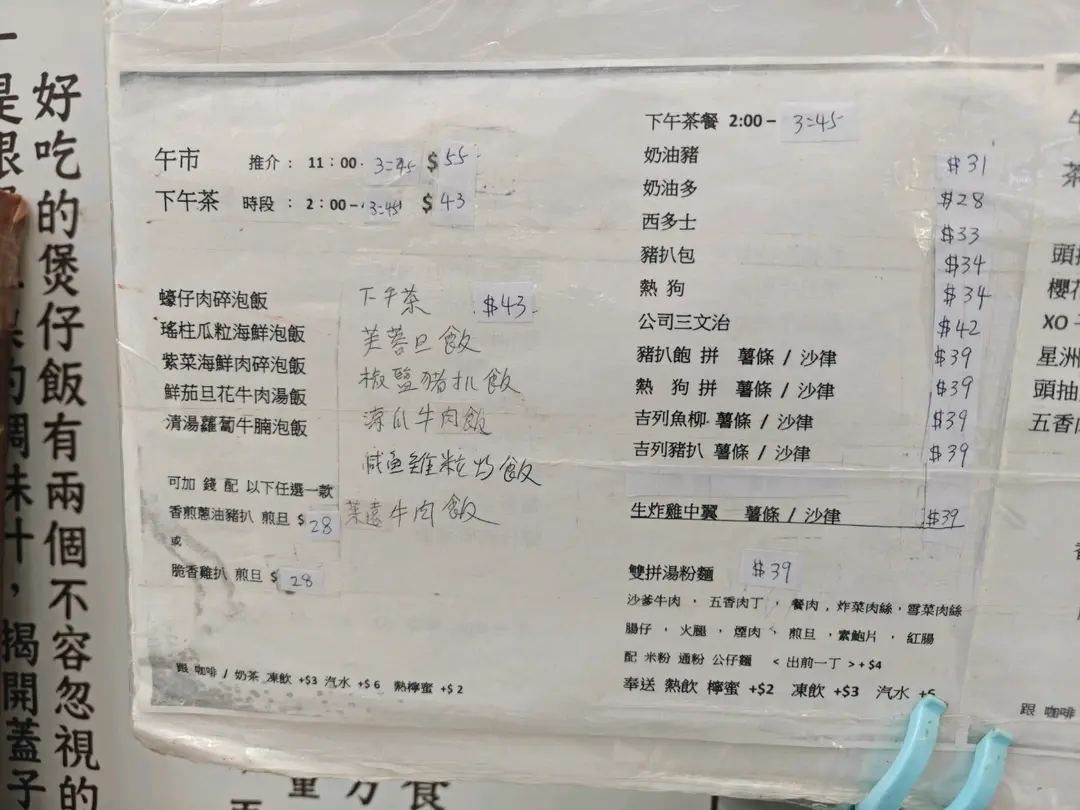 好吃的煲仔飯有兩個不容忽視的
調味汁，揭開蓋子
午市 推介： 11：00- 3=45 $55
下午茶 時段 ： 2：00– 3=45 $43
蠔仔肉碎泡飯
瑤柱瓜粒海鮮泡飯
紫菜海鮮肉碎泡飯
鮮茄旦花牛肉湯飯
清湯蘿蔔牛腩泡飯
可加 錢 配 以下任選一款
香煎蔥油豬扒 煎旦 $28
或
脆香雞扒 煎旦 $28
跟 咖啡 / 奶茶 凍飲 +$3 汽水 +$ 6 熱檸蜜 +$ 2
下午茶 $43
芙蓉旦飯
椒鹽豬扒飯
涼瓜牛肉飯
咸魚雞粒炒飯
菜遠牛肉飯
下午茶餐 2:00– 3=45
奶油豬 $31
奶油多 $28
西多士 $33
豬扒包 $34
熱 狗 $34
公司三文治 $42
豬扒飽 拼 薯條 / 沙律 $39
熱 狗 拼 薯條 / 沙律 $39
吉列魚柳 薯條 / 沙律 $39
吉列豬扒 薯條 / 沙律 $39
生炸雞中翼 薯條 / 沙律 $39
雙拼湯粉麵 $39
沙爹牛肉 ， 五香肉丁 ， 餐肉 , 炸菜肉絲 , 雪菜肉絲
腸仔 ， 火腿 ， 煙肉 ， 煎旦 ，素鮑片 ， 紅腸
配 米粉 通粉 公仔麵 < 出前一丁 > + $4
奉送 熱飲 檸蜜 +$2 凍飲 +$3 汽水 +6
頭抽
櫻花
XO
星洲
頭抽
五香肉
跟 咖啡